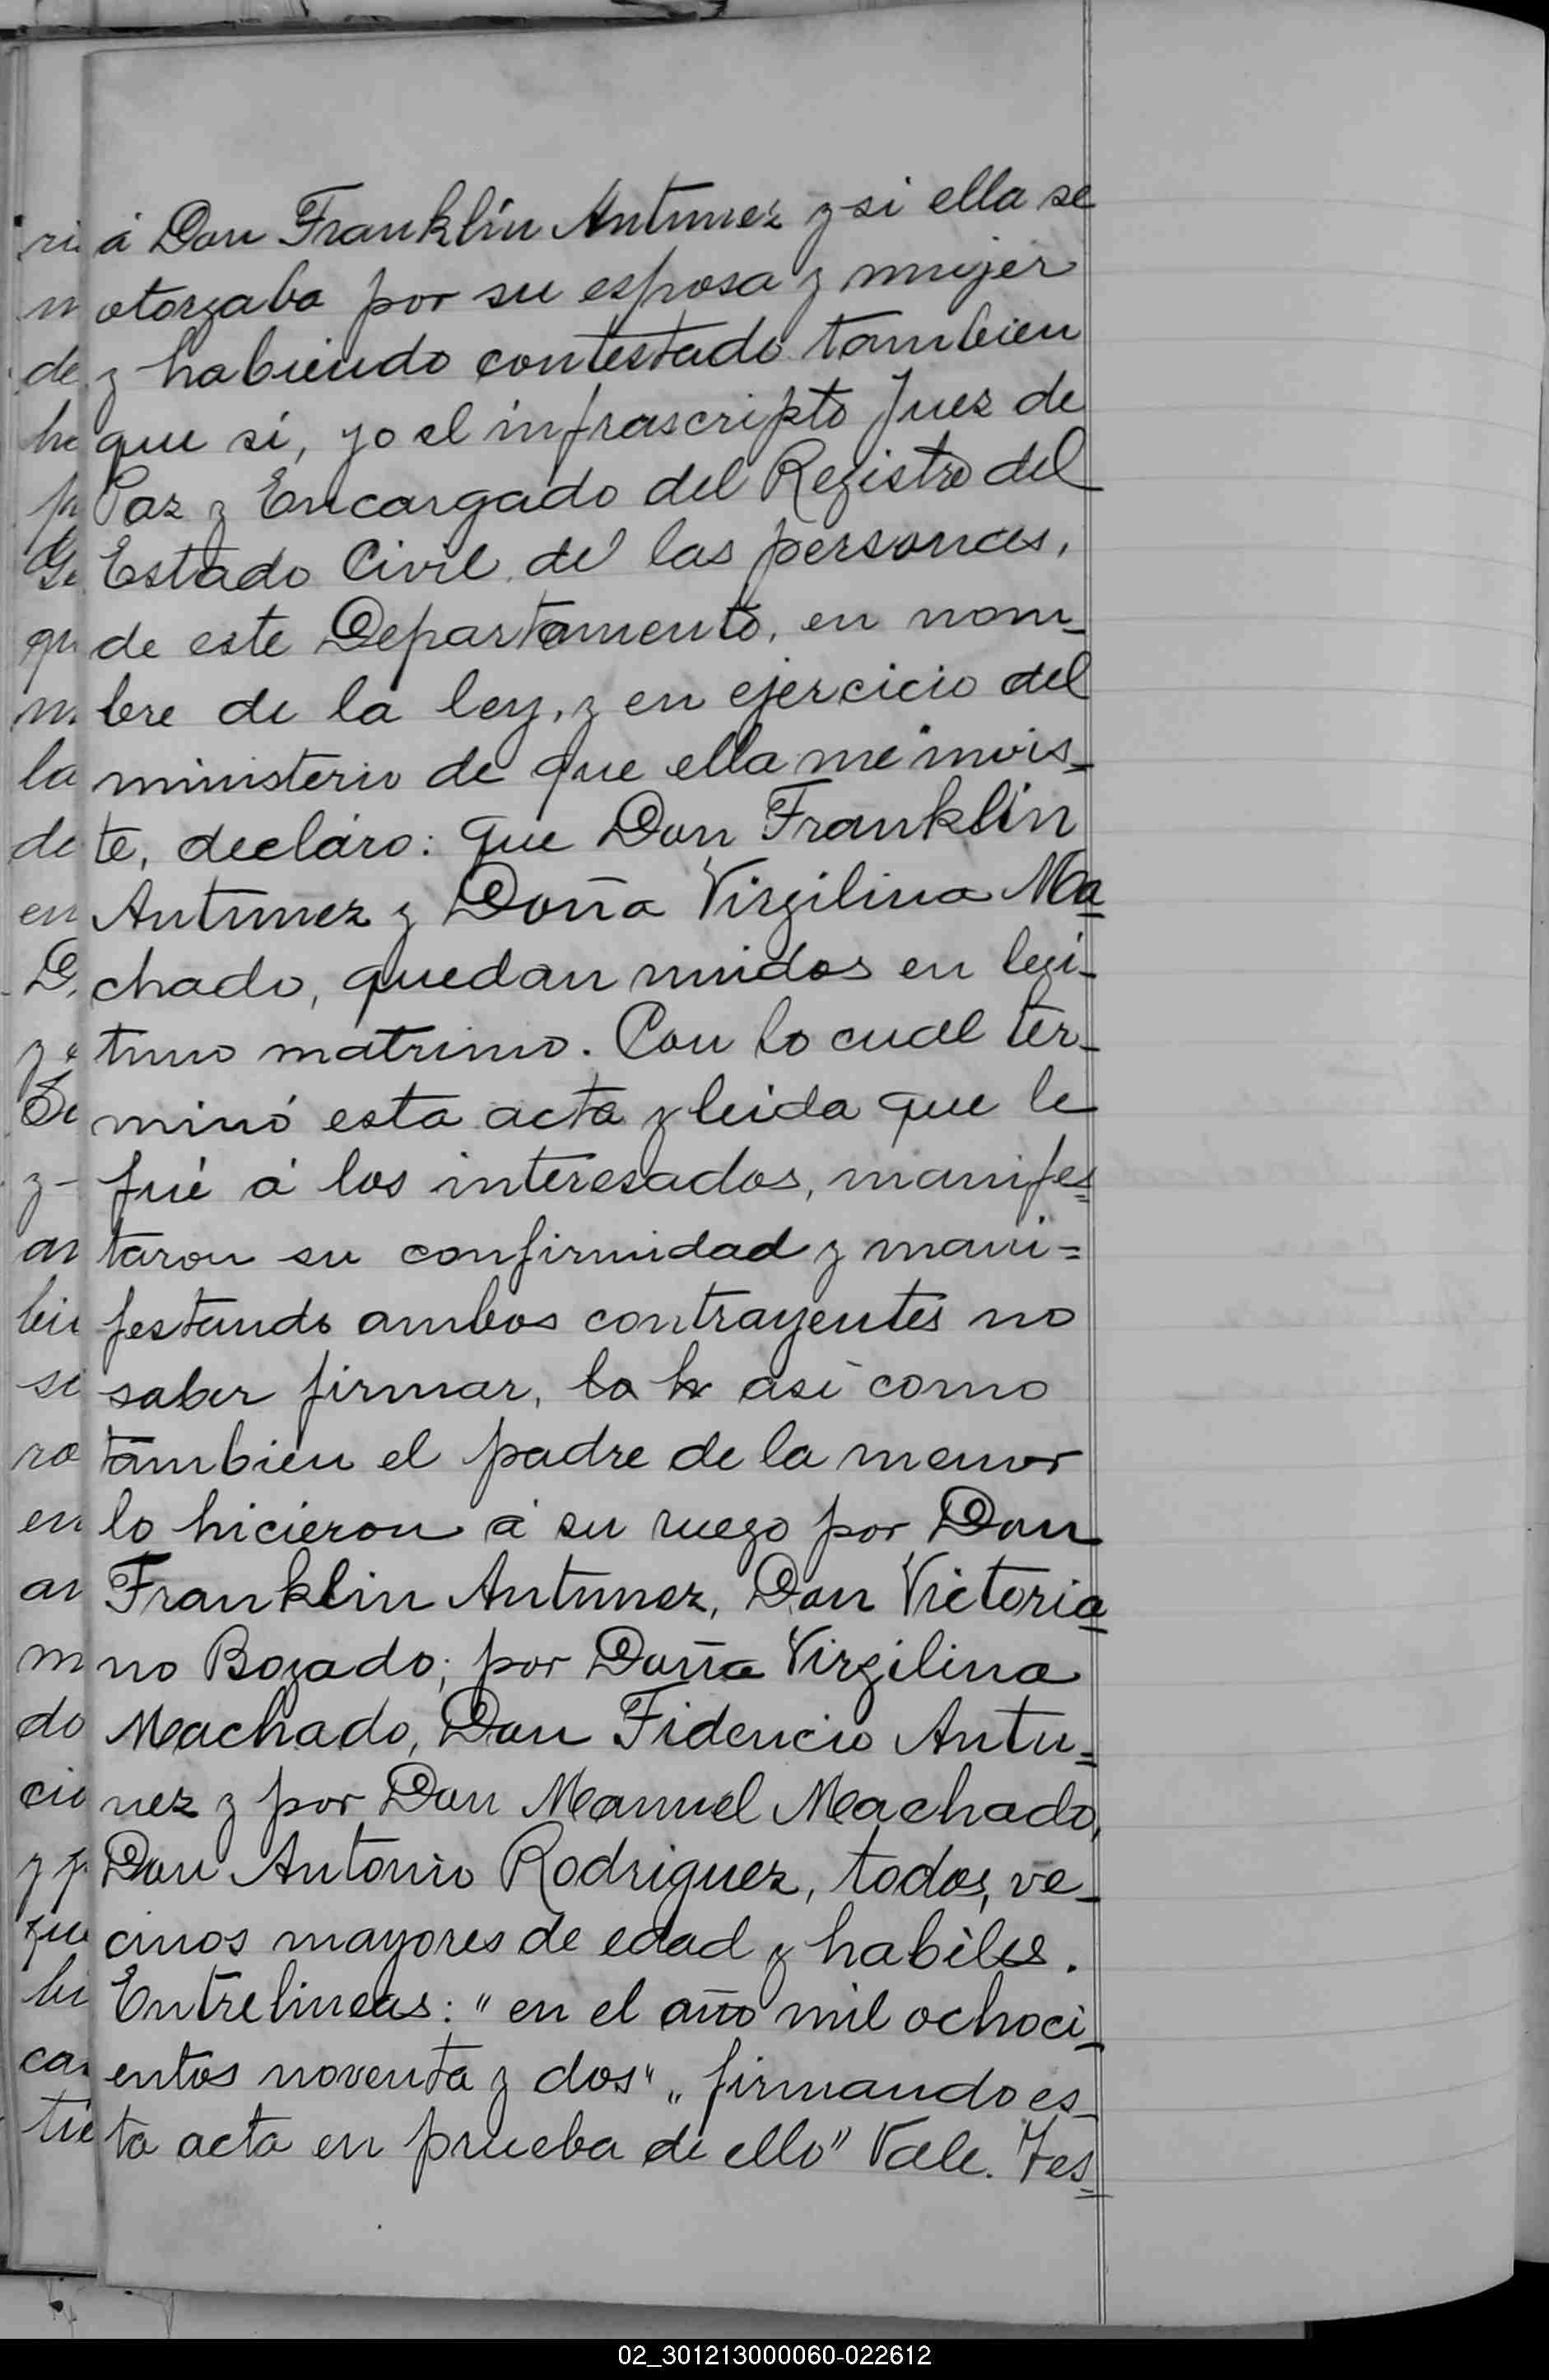 á Don Franklin Antunez y si ella se
otorgaba por su esposa y mujer
y habiendo contestado tambien
que si, yo el infrascripto Juez de
Paz y Encargado del Registro del
Estado Civil de las personas,
de este Departamento, en nom-
bre de la ley, y en ejercicio del
ministerio de que ella me invis-
te, decláro: que Don Franklin
Antunez y Doña Virgilina Ma-
chado, quedan unidos en legi-
timo matrimo. Con lo cual ter-
minó esta acta y leida que le
fué á los interesados, manifes=
taron su confirmidad y mani=
festando ambos contrayentes no
saber firmar, lo h así como
tambien el padre de la menor
lo hicieron á su ruego por Don
Franklin Antunez, Don Victoria=
no Bozado; por Doña Virgilina
Machado, Don Fidencio Antu=
nez y por Don Manuel Machado,
Don Antonio Rodriguez, todos, ve-
cinos mayores de edad y habiles.
Entrelineas: "en el año mil ochoci-
entos noventa y dos" "firmando es-
ta acta en prueba de ello" Vale. Tes=
02_301213000060-022612